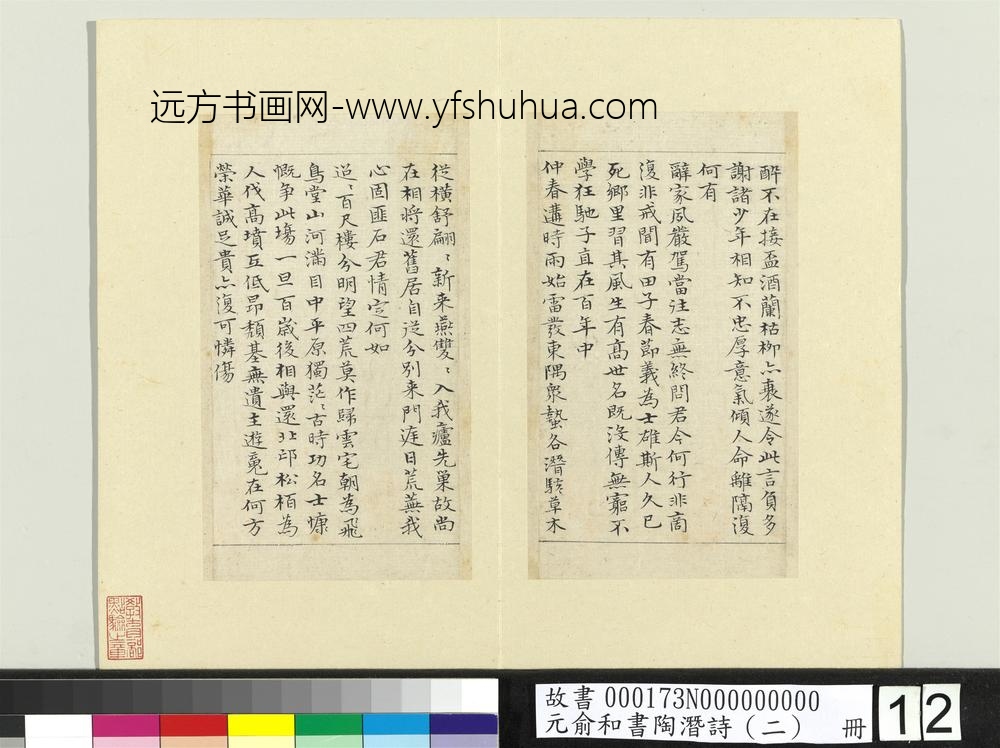 远方书画网-www.yfshuhua.com
醉不在接盃酒蘭枯柳亦衰遂令此言負多
謝諸少年相知不忠厚意氣傾人命離隔復
何有
辭家夙嚴駕當往志無終問君今何行非商
復非戎聞有田子春節義為士雄斯人久已
死鄉里習其風生有高世名既沒傳無窮不
學狂馳子直在百年中
仲春遘時雨始雷發東隅衆蟄各潛駭草木
從橫舒翩〻新來燕雙〻入我廬先巢故尚
在相將還舊居自從分別來門庭日荒蕪我
心固匪石君情定何如
迢〻百尺樓分明望四荒莫作歸雲宅朝為飛
鳥堂山河滿目中平原獨茫〻古時功名士慷
慨爭此場一旦百歲後相與還北邙松栢為
人伐高墳互低昂頹基無遺主遊䰟在何方
榮華誠足貴亦復可憐傷
故書 000173N000000000
元俞和書陶潛詩（二） 冊
12